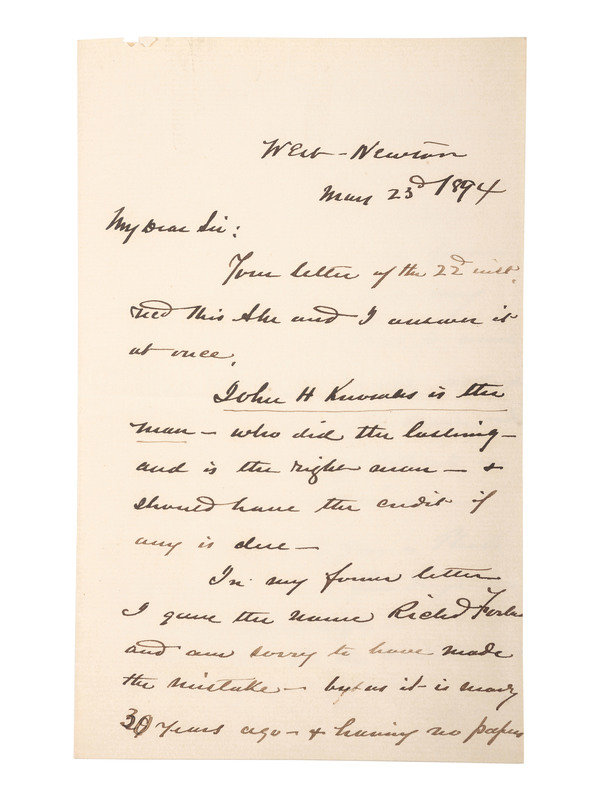 West-Newton
May 23d 1894
My Dear Sir:
Your letter of the 22d inst.
recd this and I answer it
at once.
John H Knowles is the
man - who did the lashing -
and is the right man - &
should have the credit if
any is due -
In my former letter
I gave the name Richd
and am sorry to have made
the mistake - but as it is many
30 years ago - & having no papers